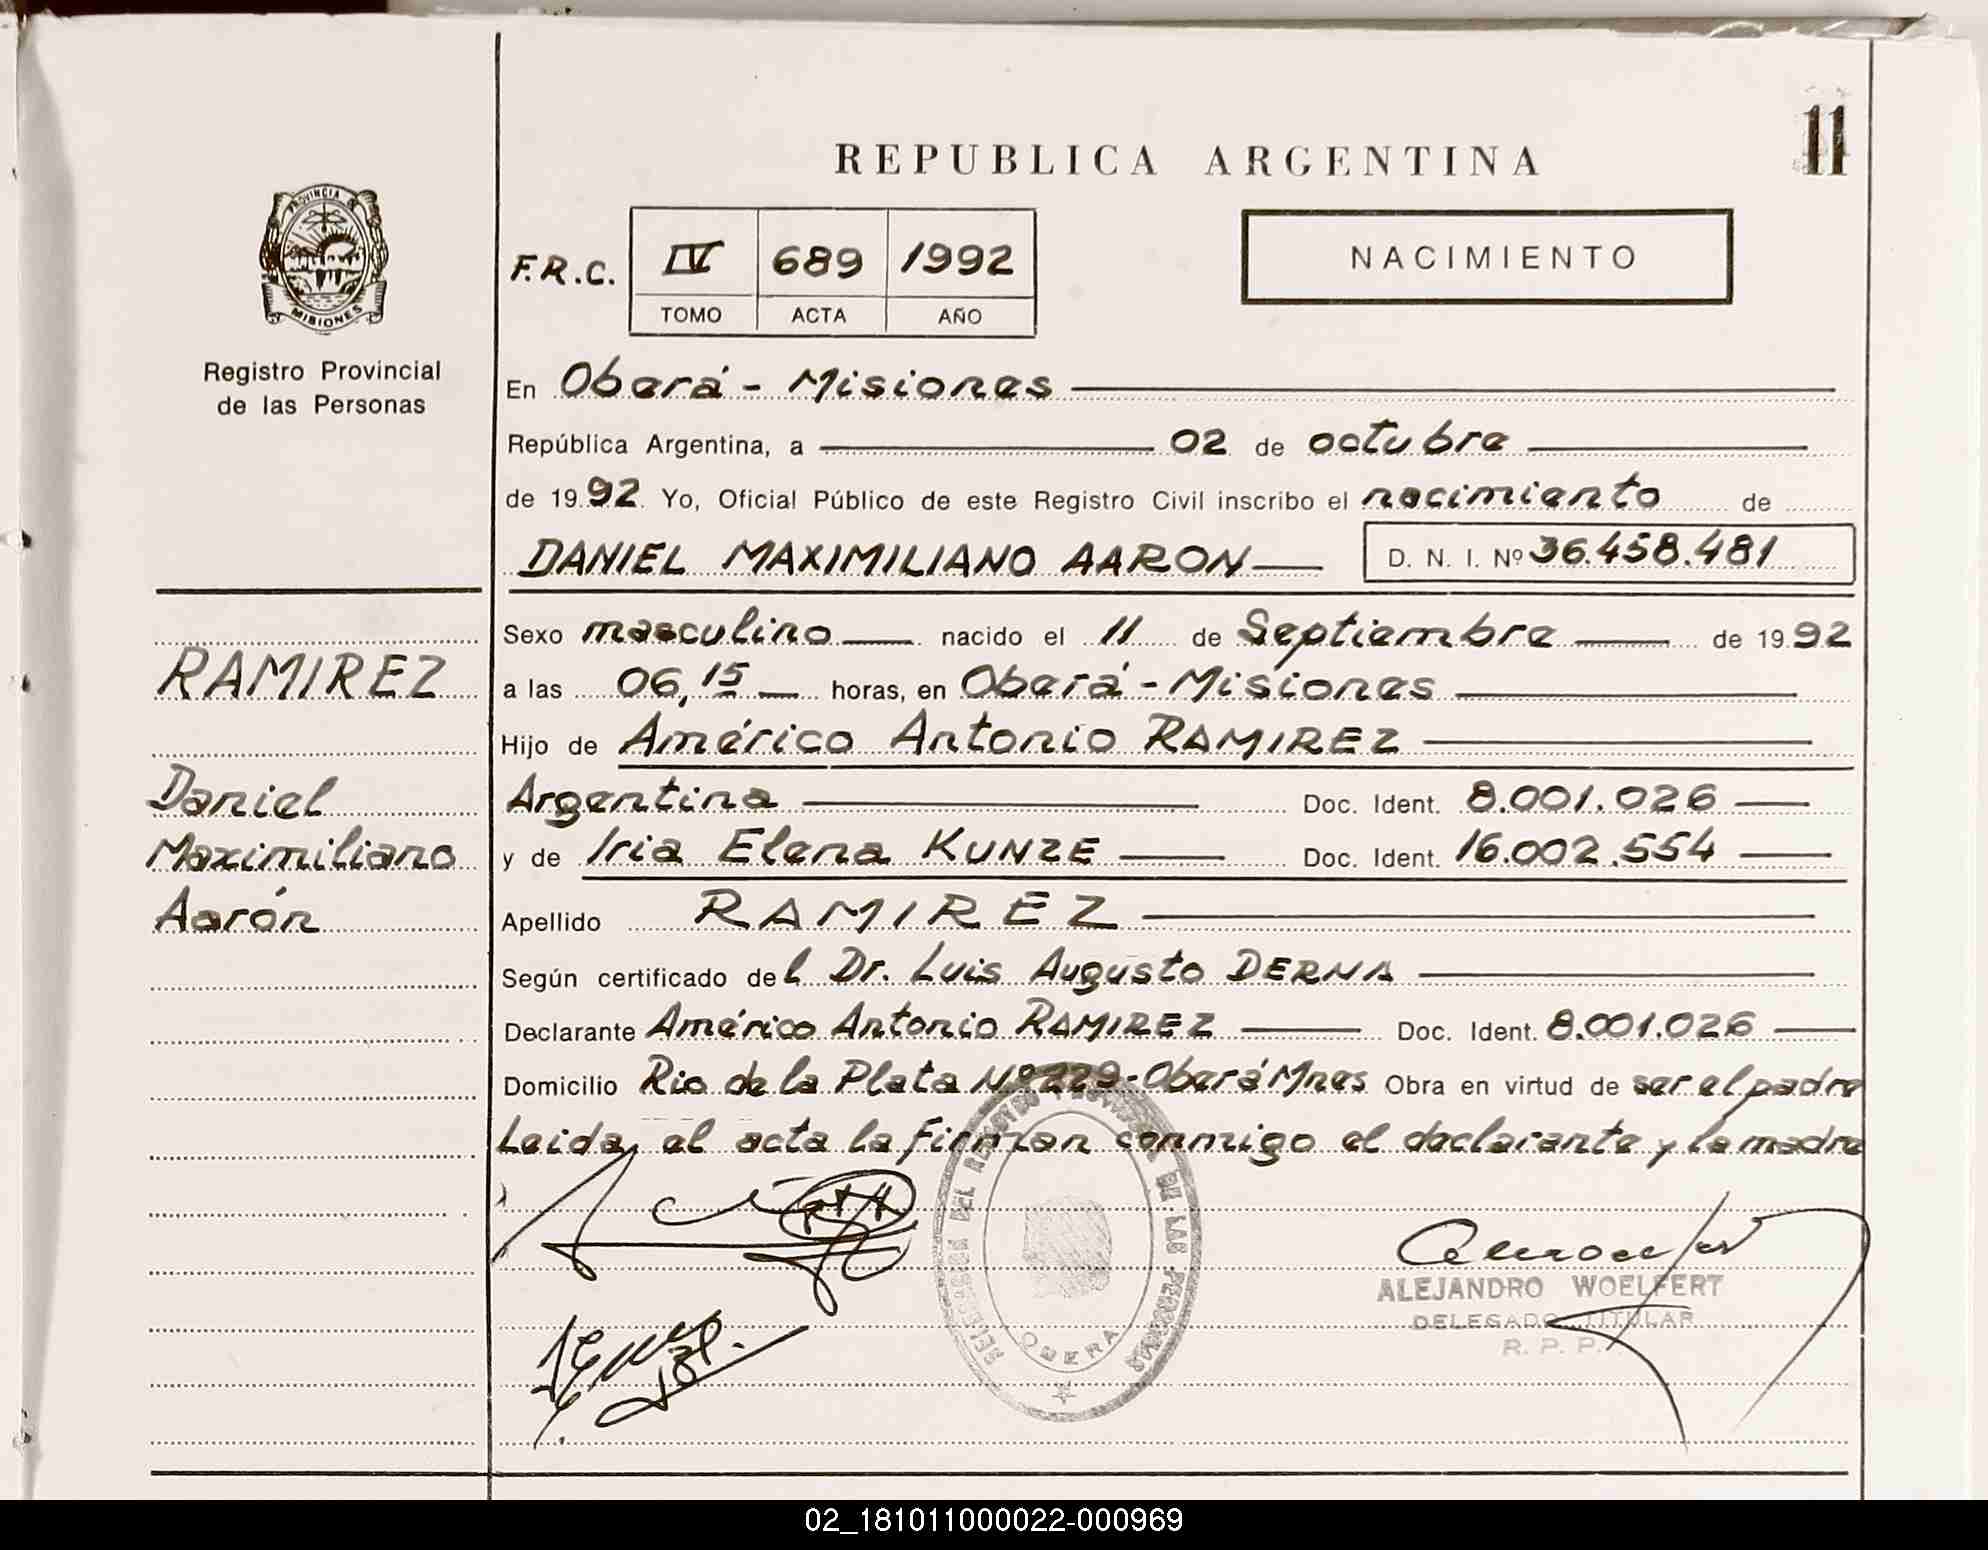 11
REPUBLICA ARGENTINA
PROVINCIA DE
MISIONES
Registro Provincial
de las Personas
F.R.C. IV 689 1992
TOMO ACTA AÑO
NACIMIENTO
En Oberá - Misiones
República Argentina, a 02 de octubre
de 1992. Yo, Oficial Público de este Registro Civil inscribo el nacimiento de
DANIEL MAXIMILIANO AARON D. N. I. Nº 36.458.481
Sexo masculino nacido el 11 de Septiembre de 1992
RAMIREZ
a las 06,15 horas, en Oberá - Misiones
Hijo de Américo Antonio RAMIREZ
Daniel
Argentina Doc. Ident. 8.001.026
Maximiliano
y de Iria Elena KUNZE Doc. Ident. 16.002.554
Aarón
Apellido RAMIREZ
Según certificado del Dr. Luis Augusto DERNA
Declarante Américo Antonio RAMIREZ Doc. Ident. 8.001.026
Domicilio Rio de la Plata Nº 229 - Oberá Mnes Obra en virtud de ser el padre
Leida el acta la firman conmigo el declarante y la madre
DELEGACION DEL REGISTRO PROVINCIAL DE LAS PERSONAS
OBERA
ALEJANDRO WOELFERT
DELEGADO TITULAR
R. P. P.
02_181011000022-000969